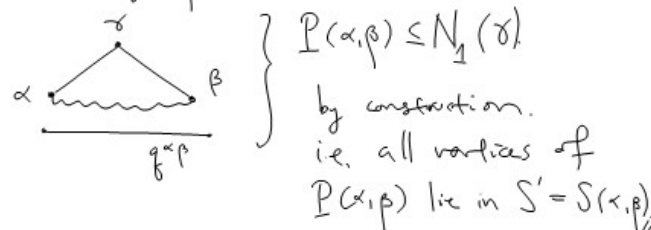 γ
α
β
q^αβ
P(α,β) ≤ N_1(γ).
by construction.
i.e. all vertices of
P(α,β) lie in S' = S(α,β)